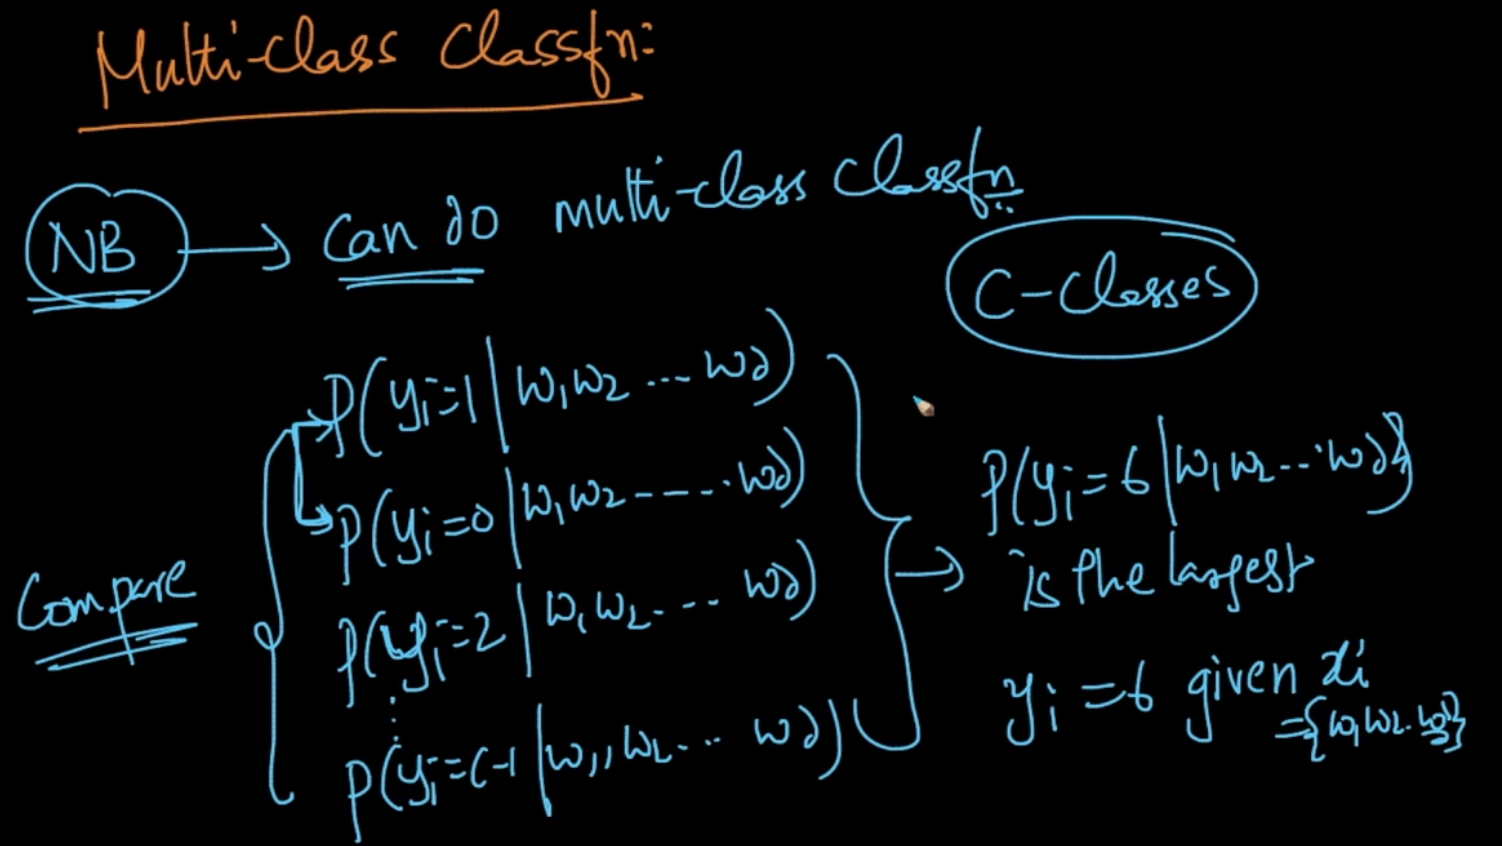 Multi-class Classfn:
NB → can do multi-class classfn
C-classes
P(yi=1 | w1 w2 .... wd)
P(yi=0 | w1, w2 ------ wd)
P(yi=2 | w1, w2 ---- wd)
⋮
P(yi=c-1 | w1, w2 .... wd)
Compare
→ P(yi=6 | w1, w2 ---- wd)
is the largest
yi=6 given xi
={w1, w2..wd}